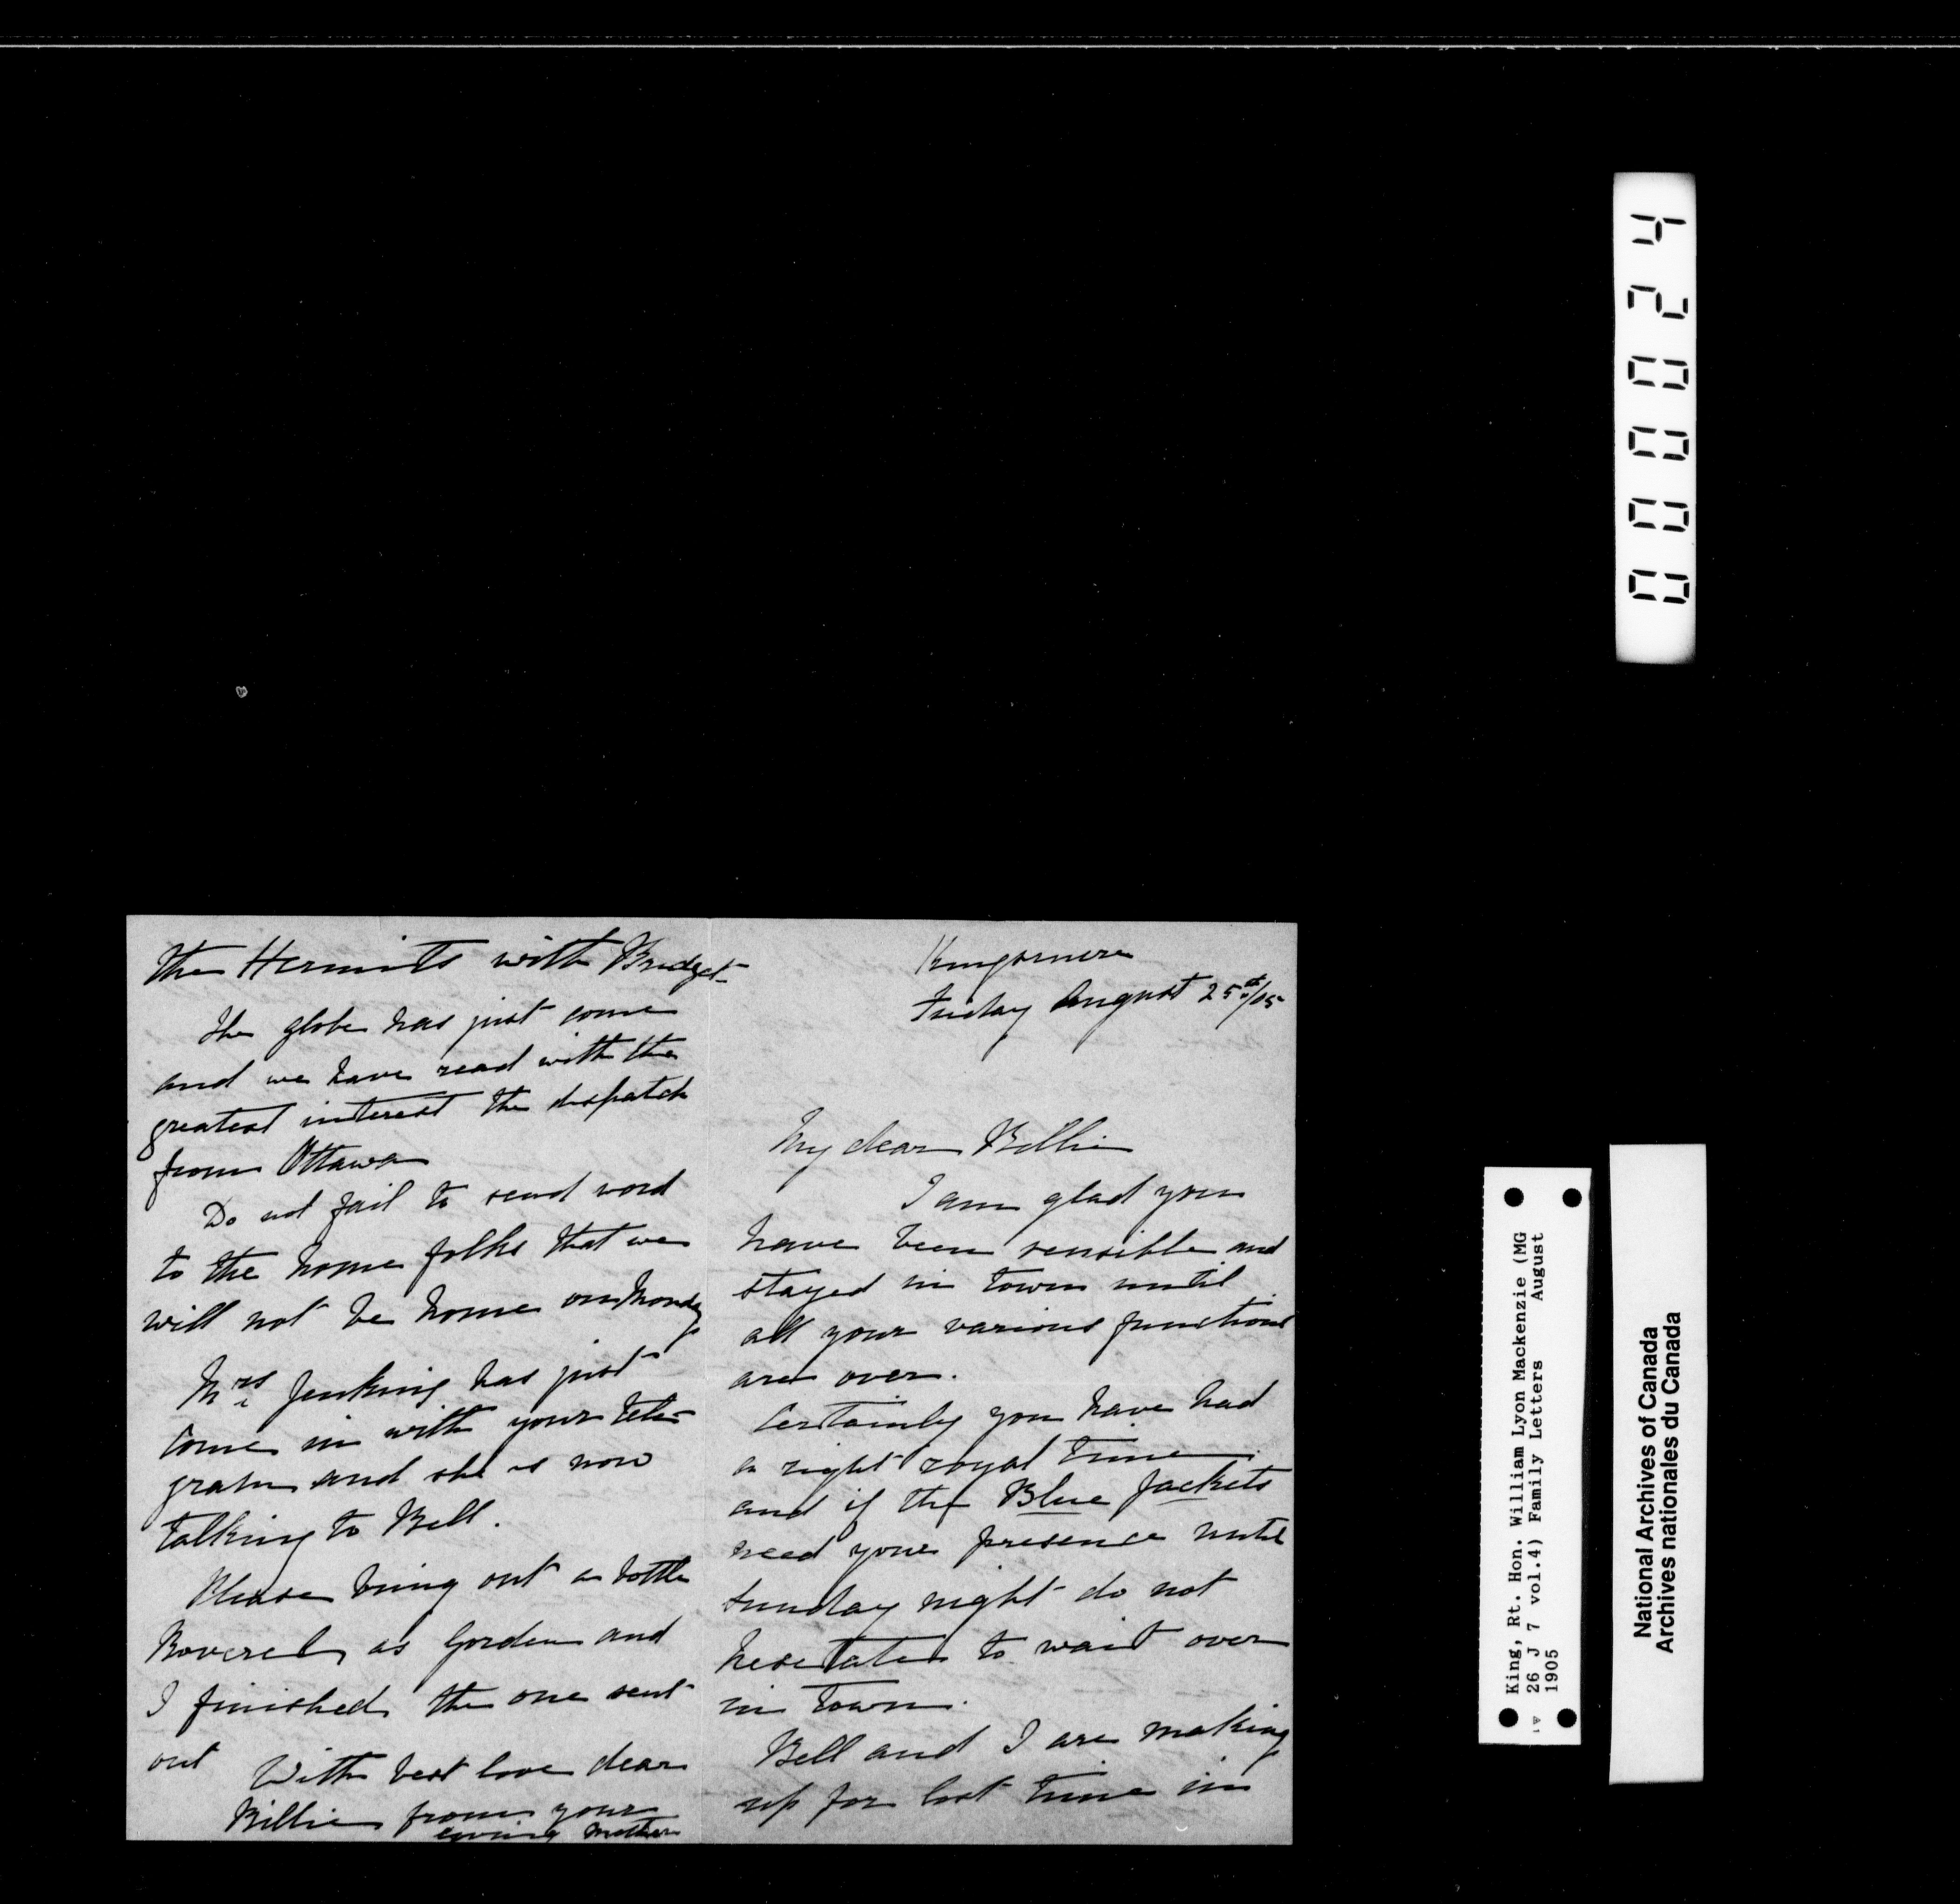 Kingsmere
Friday August 25th/05
My dear Billie
I am glad you
have been sensible and
stayed in town until
all your various functions
are over.
Certainly you have had
a right royal time
and if the Blue Jackets
need your presence until
Sunday night do not
hesetate to wait over
in town.
Bell and I are making
up for lost time in
the Hermits with Bridget
The globe has just come
and we have read with the
greatest interest the dispatch
from Ottawa
Do not fail to send word
to the home folks that we
will not be home on Monday
Mrs Jenkins has just
come in with your tele-
gram and she is now
talking to Bell.
Please bring out a bottle
Boveril, as Gordon and
I finished the one sent
out
With best love dear
Billie from your
loving Mother
000024
King, Rt. Hon. William Lyon Mackenzie (MG
26 J 7 vol.4) Family Letters August
1905
National Archives of Canada
Archives nationales du Canada